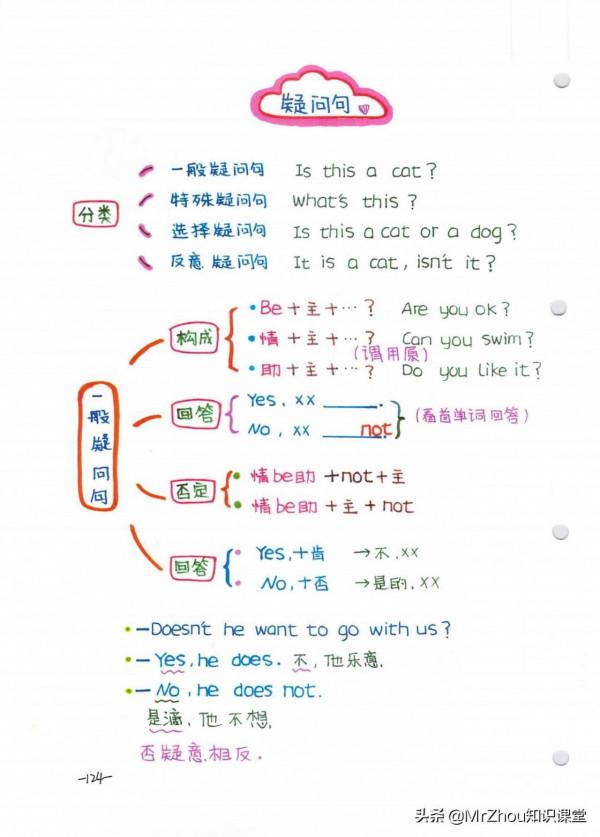 疑问句
分类
一般疑问句 Is this a cat?
特殊疑问句 What's this?
选择疑问句 Is this a cat or a dog?
反意疑问句 It is a cat, isn't it?
一般疑问句
构成
•Be+主+…? Are you ok?
•情+主+…? Can you swim?
(调用原)
•助+主+…? Do you like it?
回答
Yes, xx ______.
No, xx ______not.
(看首单词回答)
否定
•情be助+not+主
•情be助+主+not
回答
•Yes,+肯 →不,xx
•No,+否 →是的,xx
•—Doesn't he want to go with us?
•—Yes, he does. 不,他乐意.
•—No, he does not.
是滴,他不想.
否疑意相反.
-124-
头条 @MrZhou知识课堂